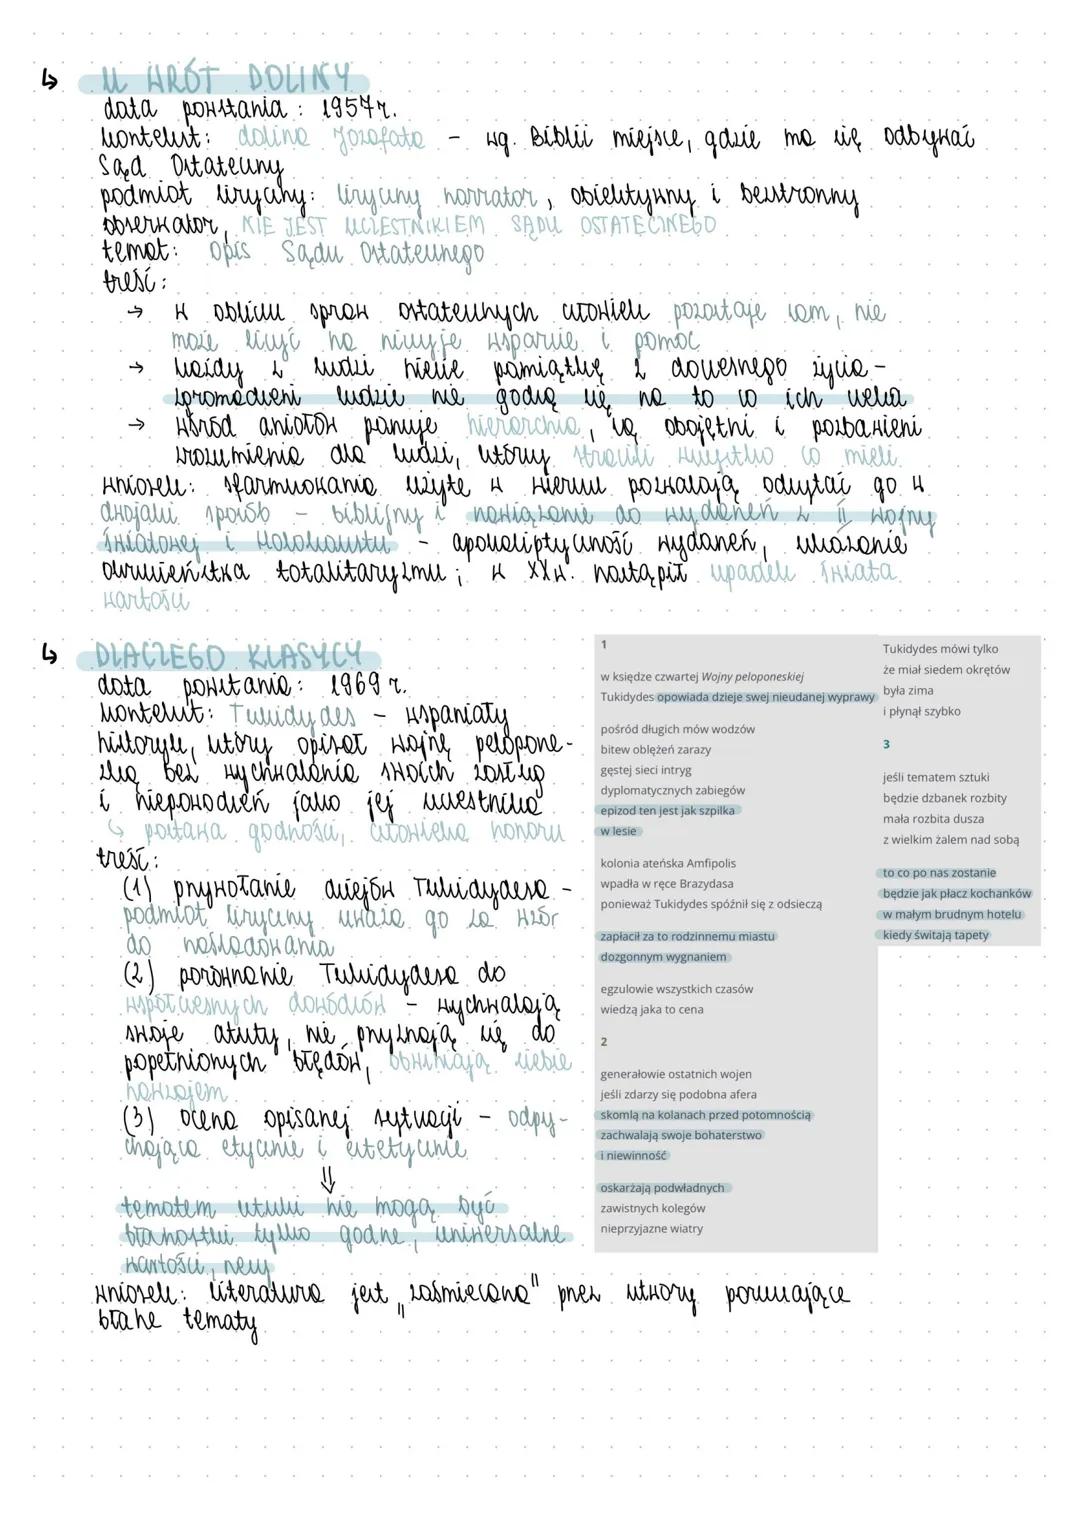 ↳ U WRÓT DOLINY
data powstania: 1957r.
kontekst: dolina Jozafata - wg. Biblii miejsce, gdzie ma się odbywać
Sąd Ostateczny
podmiot liryczny: liryczny narrator, obiektywny i bezstronny
obserwator, NIE JEST UCZESTNIKIEM SĄDU OSTATECZNEGO
temat: opis Sądu Ostatecznego
treść:
→ w obliczu spraw ostatecznych człowiek pozostaje sam, nie
może liczyć na niczyje wsparcie i pomoc
→ każdy z ludzi niesie pamiątkę z doczesnego życia -
zgromadzeni ludzie nie godzą się na to co ich czeka
→ wśród aniołów panuje hierarchia, są obojętni i pozbawieni
zrozumienia dla ludzi, którzy stracili wszystko co mieli
wniosek: sformułowania użyte w wierszu pozwalają odczytać go w
dwojaki sposób - biblijny i nawiązanie do wydarzeń z II wojny
światowej i Holokaustu - apokaliptyczność wydarzeń, ukazanie
okrucieństwa totalitaryzmu; w XXw. nastąpił upadek świata
wartości
↳ DLACZEGO KLASYCY
data powstania: 1969 r.
kontekst: Tukidydes - wspaniały
historyk, który opisał wojnę pelopone-
ską bez wychwalania swoich zasług
i niepowodzeń jako jej uczestnika
↳ postawa godności, człowieka honoru
treść:
(1) przywołanie dziejów Tukidydesa -
podmiot liryczny uważa go za wzór
do naśladowania
(2) porównanie Tukidydesa do
współczesnych dowódców - wychwalają
swoje atuty, nie przyznają się do
popełnionych błędów, obwiniają siebie
nawzajem
(3) ocena opisanej sytuacji - odpy-
chająca etycznie i estetycznie
⇓
tematem sztuki nie mogą być
błahostki tylko godne, uniwersalne
wartości, rzeczy
wniosek: literatura jest „zaśmiecona" przez utwory poruszające
błahe tematy
1
w księdze czwartej Wojny peloponeskiej
Tukidydes opowiada dzieje swej nieudanej wyprawy
pośród długich mów wodzów
bitew oblężeń zarazy
gęstej sieci intryg
dyplomatycznych zabiegów
epizod ten jest jak szpilka
w lesie
kolonia ateńska Amfipolis
wpadła w ręce Brazydasa
ponieważ Tukidydes spóźnił się z odsieczą
zapłacił za to rodzinnemu miastu
dozgonnym wygnaniem
egzulowie wszystkich czasów
wiedzą jaka to cena
2
generałowie ostatnich wojen
jeśli zdarzy się podobna afera
skomlą na kolanach przed potomnością
zachwalają swoje bohaterstwo
i niewinność
oskarżają podwładnych
zawistnych kolegów
nieprzyjazne wiatry
Tukidydes mówi tylko
że miał siedem okrętów
była zima
i płynął szybko
3
jeśli tematem sztuki
będzie dzbanek rozbity
mała rozbita dusza
z wielkim żalem nad sobą
to co po nas zostanie
będzie jak płacz kochanków
w małym brudnym hotelu
kiedy świtają tapety